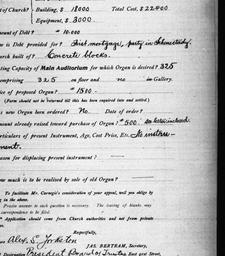 of Church? { Building, $ 18000 Total Cost, $ 22400
Equipment, $ 3000
Amount of Debt? " 10.000
is Debt provided for? First mortgage, party in Schenectady.
Church built of? Concrete blocks.
Seating Capacity of Main Auditorium for which Organ is desired? 325
comprising 325 on floor and no in Gallery.
Price of proposed Organ? $ 1500.-
(Form should not be returned till this has been required into and settled)
new Organ been ordered? No Date of order?
Amount already raised toward purchase of Organ? $ 500.
Particulars of present Instrument, Age, Cost Price, Etc. No instru-
ment.
Reason for displacing present instrument?
How much is to be realised by sale of old Organ?
To facilitate Mr. Carnegie's consideration of your appeal, will you oblige by
in the above.
Precise answer to each question is necessary. The leaving of blanks may
correspondence to be filed.
Application should come from Church authorities and not from private
Respectfully,
Alex. S.
JAS. BERTRAM, Secretary,
Designation President Board of Trustees East 91st Street,